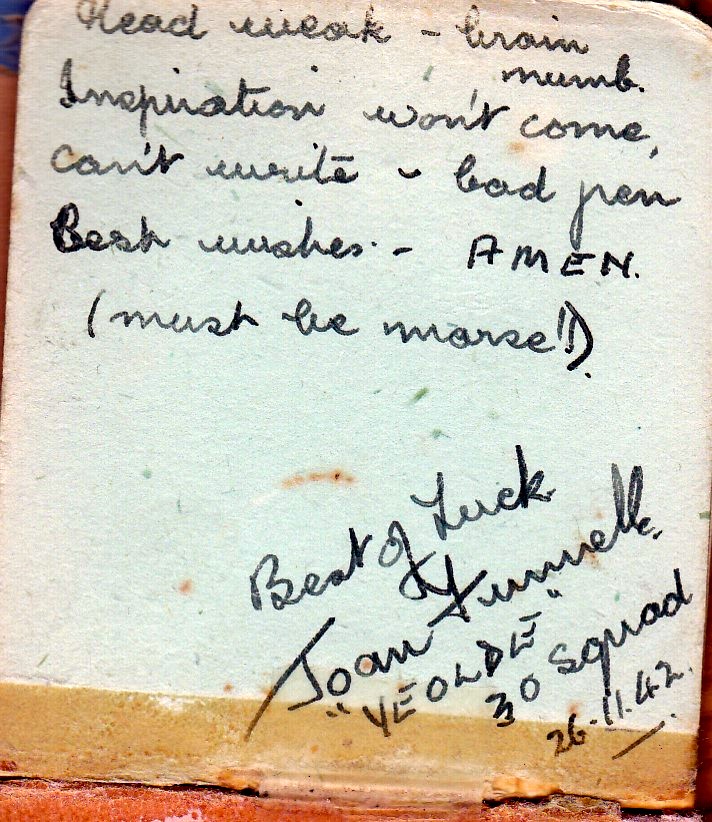 Head weak - brain
numb.
Inspiration won't come,
can't write - bad pen
Best wishes - AMEN.
(must be morse!!).
Best of Luck
Joan
"YE OLDE"
30 Squad
26.11.42.